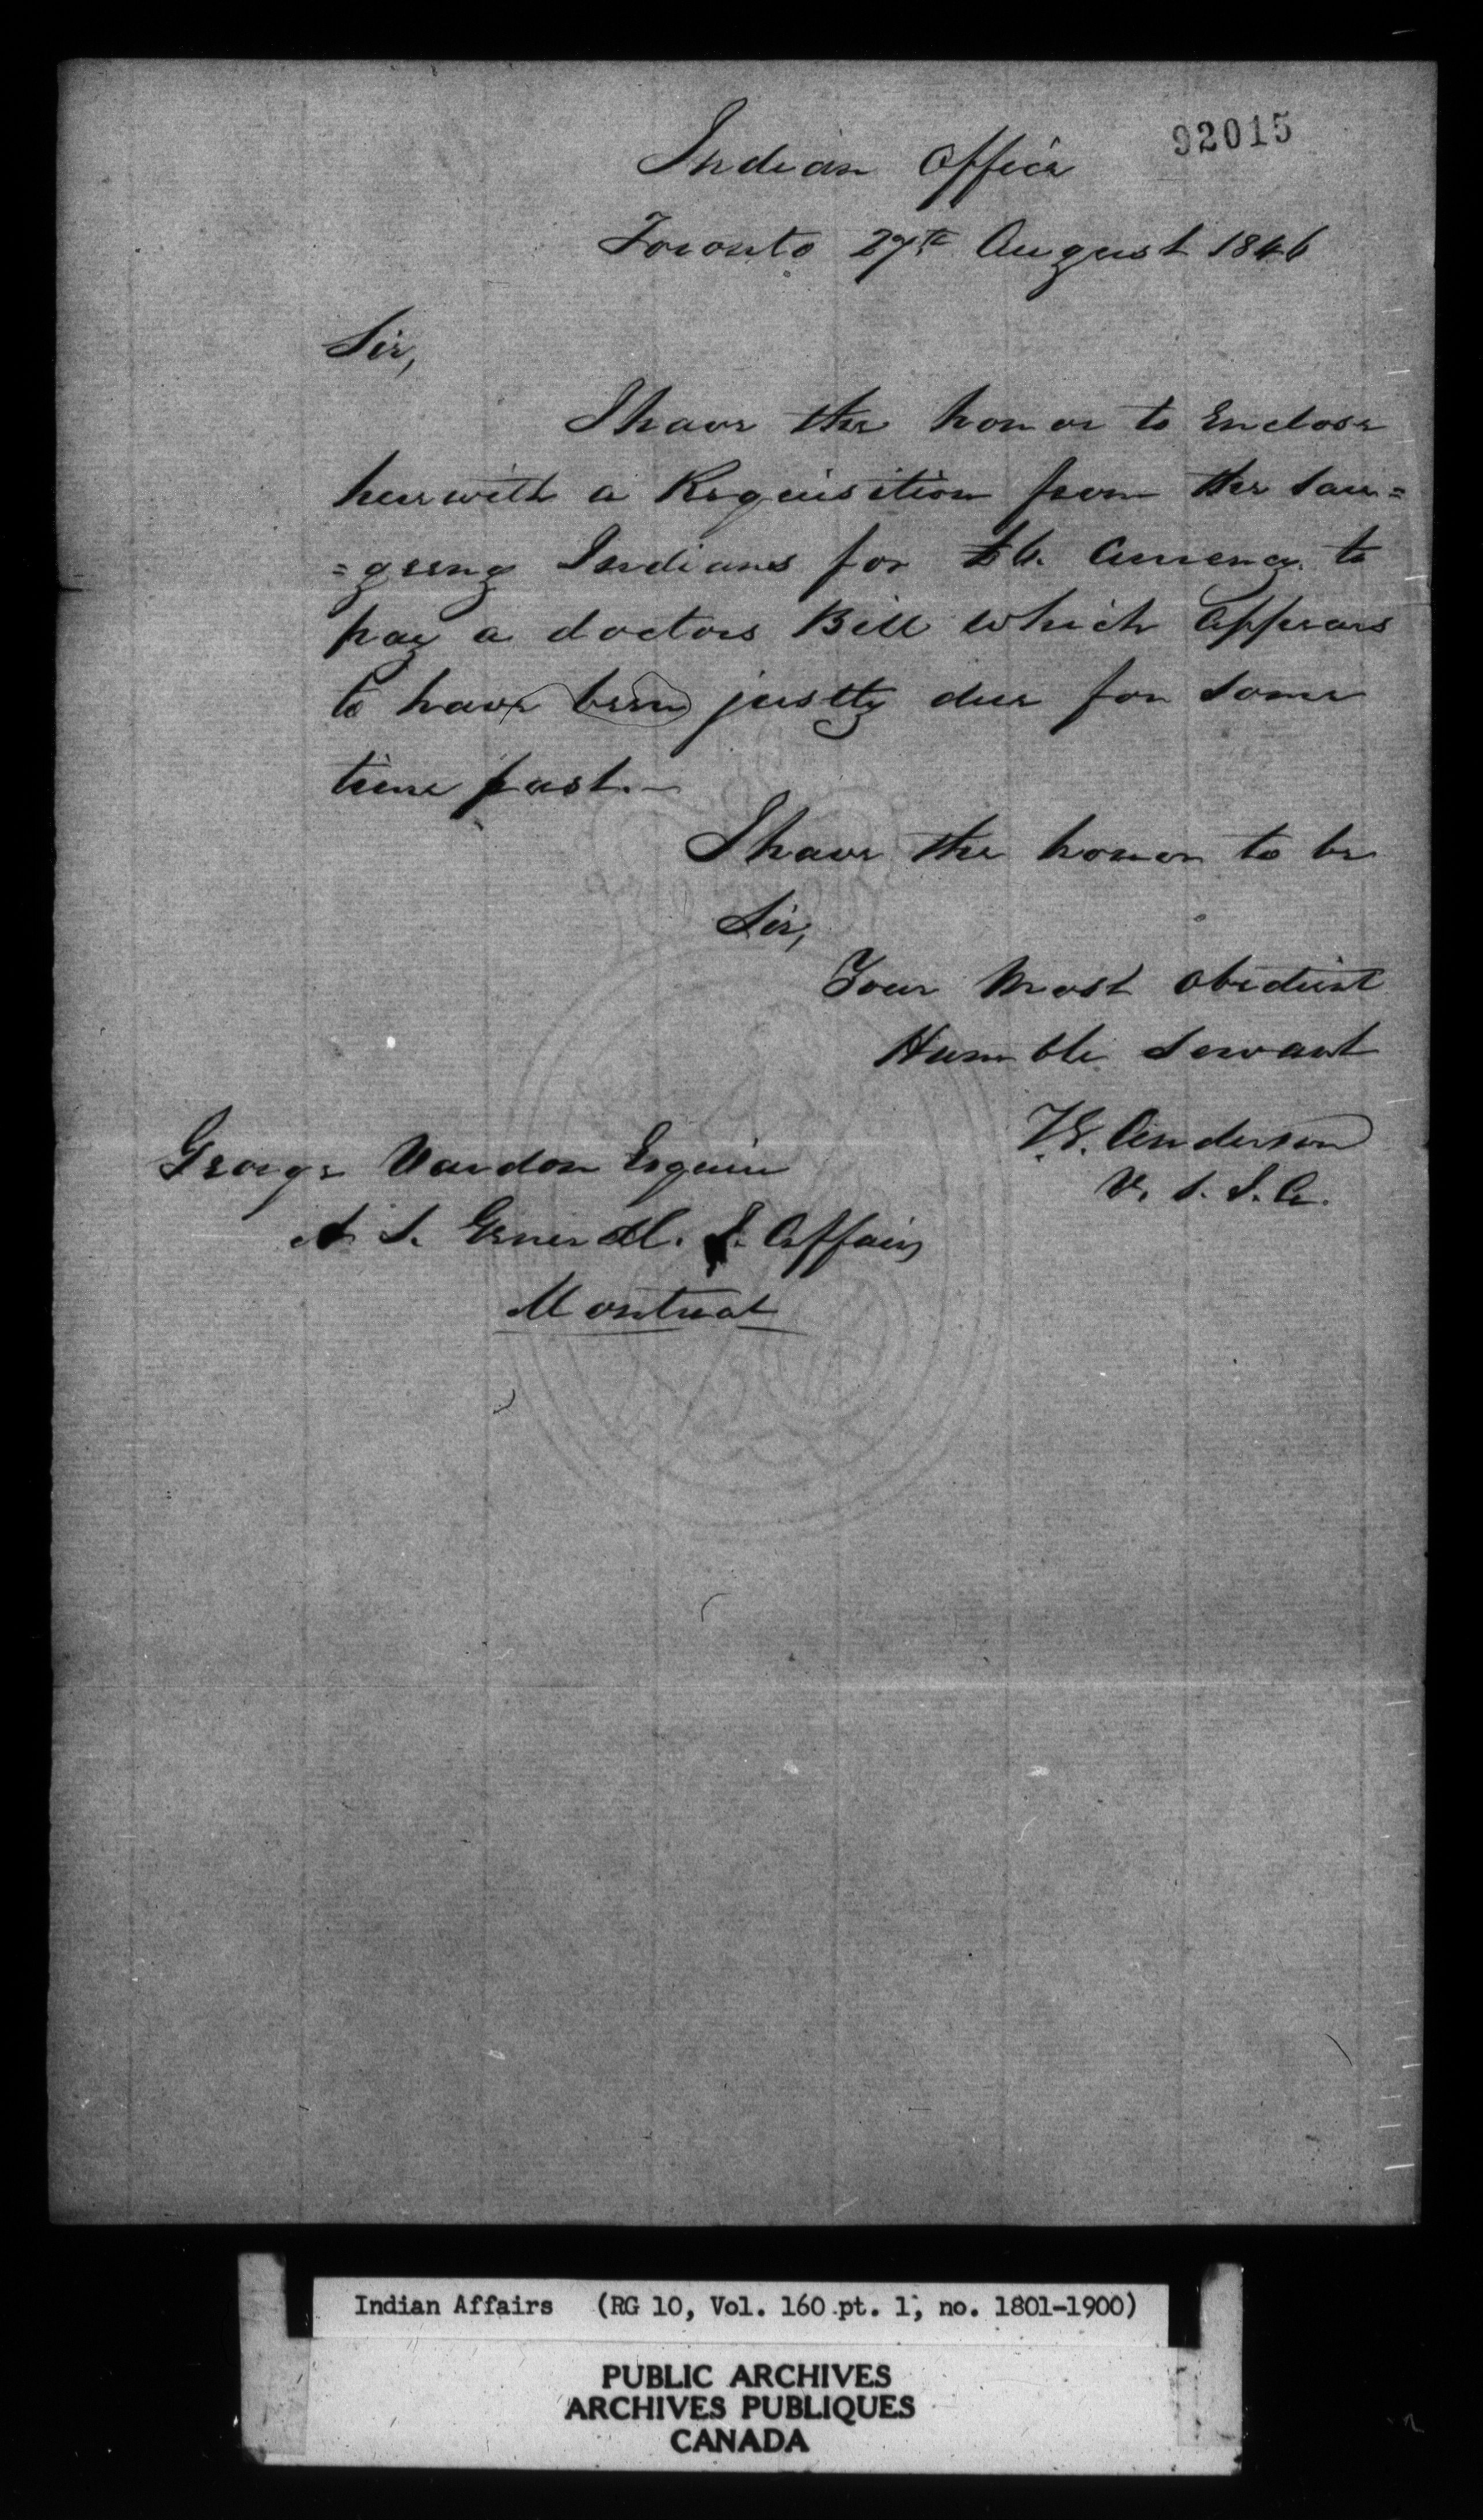 92015
Indian Office
Toronto 27th August 1846
Sir,
I have the honor to Enclose
herewith a Requisition from the Sau=
=geeng Indians for £6. Currency to
pay a doctors Bill which appears
to have been justly due for some
time past.—
I have the honor to be
Sir,
Your Most obedient
Humble Servant
T.G. Anderson
V. S. I. A.
George Vardon Esquire
A. S. General. I. Affairs
Montreal
Indian Affairs (RG 10, Vol. 160 pt. 1, no. 1801-1900)
PUBLIC ARCHIVES
ARCHIVES PUBLIQUES
CANADA